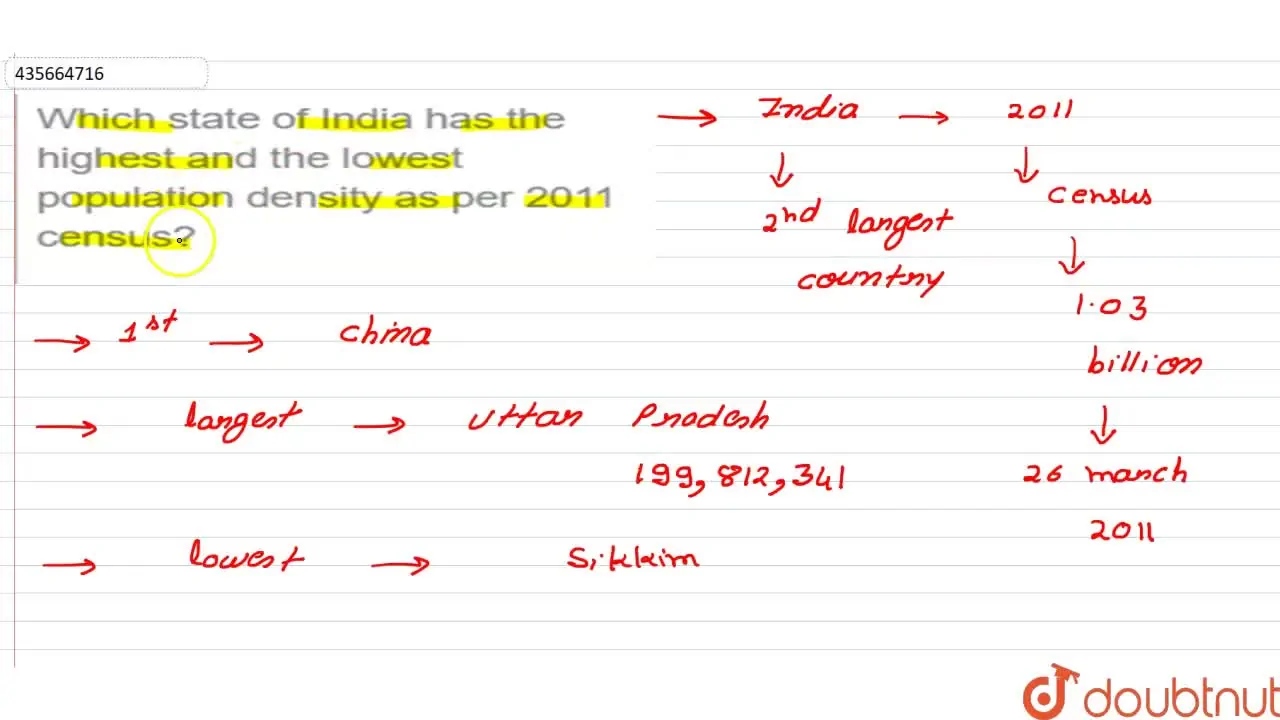 435664716
Which state of India has the
highest and the lowest
population density as per 2011
census?
→ India → 2011
↓ ↓
2nd largest
country
census
↓
1.03
billion
↓
26 march
2011
→ 1st → China
→ largest → Uttar Pradesh
199,812,341
→ lowest → Sikkim
doubtnut